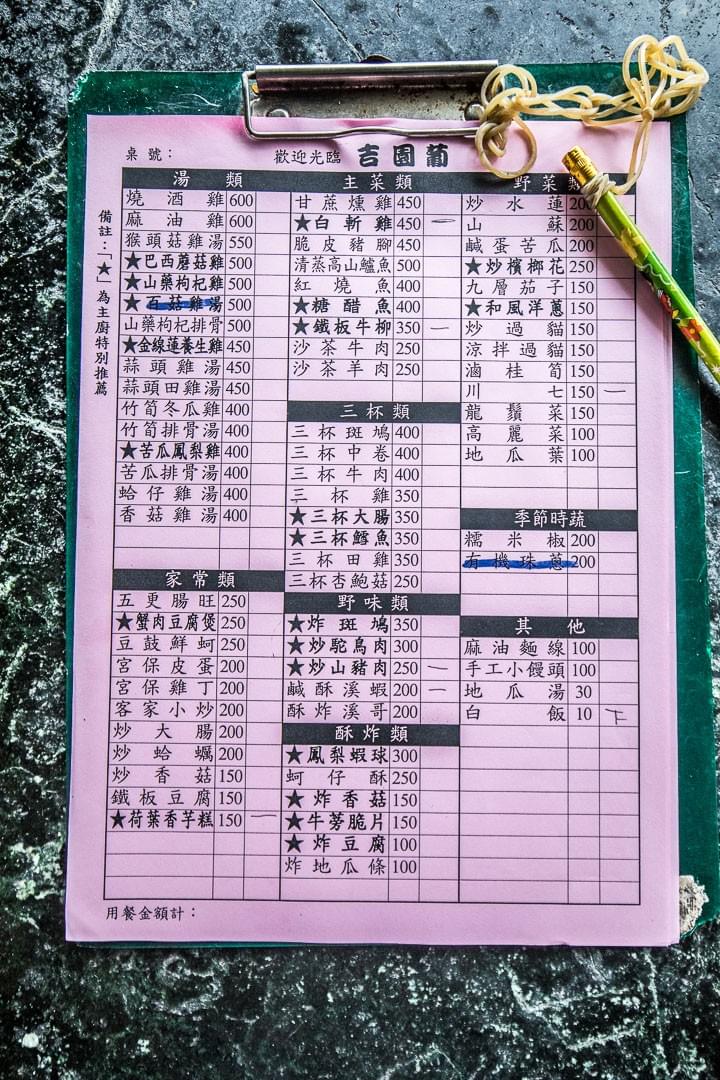 桌號：
歡迎光臨 吉園葡
備註：「★」為主廚特別推薦
湯類
燒酒雞 600
麻油雞 600
猴頭菇雞湯 550
★巴西蘑菇雞 500
★山藥枸杞雞 500
★百菇雞湯 500
山藥枸杞排骨 500
★金線蓮養生雞 450
蒜頭雞湯 450
蒜頭田雞湯 450
竹筍冬瓜雞 400
竹筍排骨湯 400
★苦瓜鳳梨雞 400
苦瓜排骨湯 400
蛤仔雞湯 400
香菇雞湯 400
家常類
五更腸旺 250
★蟹肉豆腐煲 250
豆鼓鮮蚵 250
宮保皮蛋 200
宮保雞丁 200
客家小炒 200
炒大腸 200
炒蛤蠣 200
炒香菇 150
鐵板豆腐 150
★荷葉香芋糕 150 一
主菜類
甘蔗燻雞 450
★白斬雞 450 一
脆皮豬腳 450
清蒸高山鱸魚 500
紅燒魚 400
★糖醋魚 400
★鐵板牛柳 350 一
沙茶牛肉 250
沙茶羊肉 250
三杯類
三杯斑鳩 400
三杯中卷 400
三杯牛肉 400
三杯雞 350
★三杯大腸 350
★三杯鱈魚 350
三杯田雞 350
三杯杏鮑菇 250
野味類
★炸斑鳩 350
★炒鴕鳥肉 300
★炒山豬肉 250 一
鹹酥溪蝦 200 一
酥炸溪哥 200
酥炸類
★鳳梨蝦球 300
蚵仔酥 250
★炸香菇 150
★牛蒡脆片 150
★炸豆腐 100
炸地瓜條 100
野菜類
炒水蓮 200
山蘇 200
鹹蛋苦瓜 200
★炒檳榔花 250
九層茄子 150
★和風洋蔥 150
炒過貓 150
涼拌過貓 150
滷桂筍 150
川七 150 一
龍鬚菜 150
高麗菜 100
地瓜葉 100
季節時蔬
糯米椒 200
有機珠蔥 200
其他
麻油麵線 100
手工小饅頭 100
地瓜湯 30
白飯 10 下
用餐金額計：